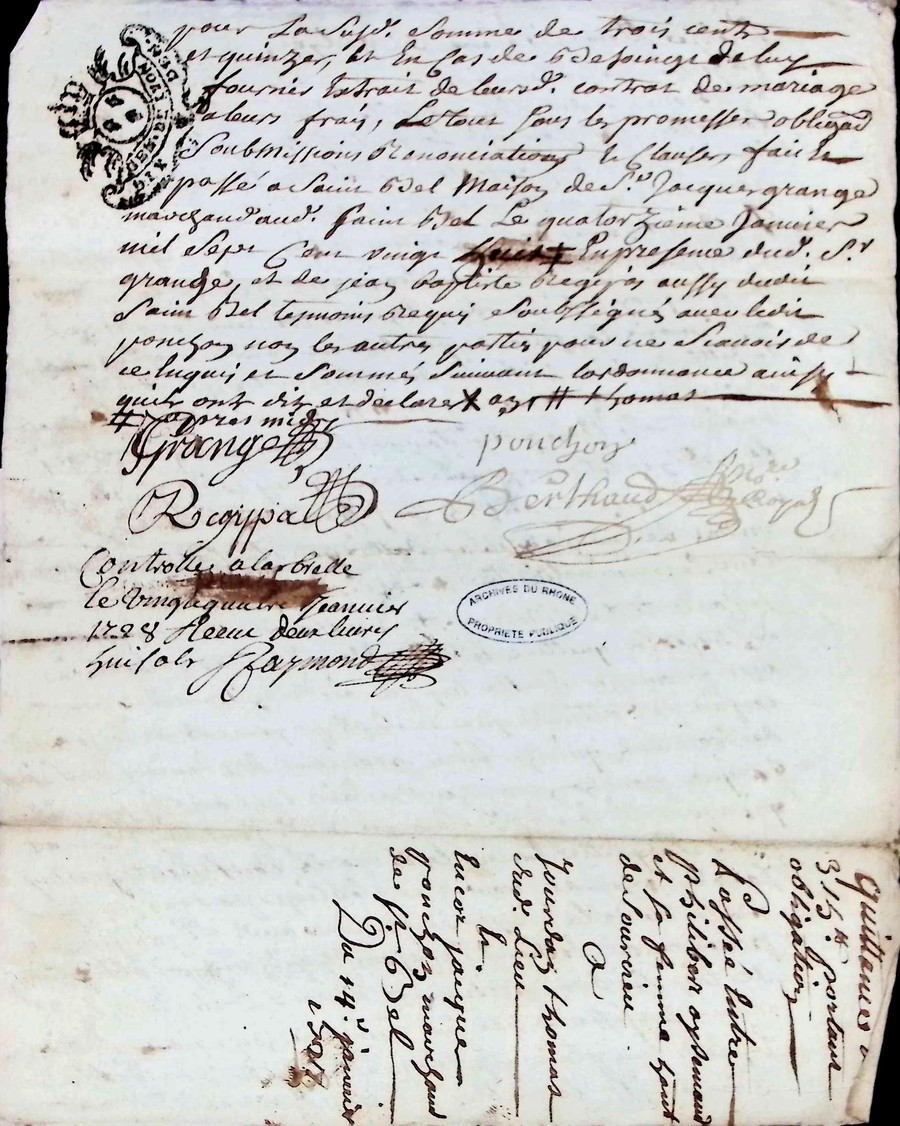 pour La susd. somme de trois cents
et quinzes, et En Cas de Besoingt de luy
fournir Extrait de leursd. contrat de mariage
a leurs frais, Le tout sous les promesses obligaõns
Soubmissions Renonciations & Clauses, fait &
passé a Saint Bel Maison de Sr. Jacques grange
marchand aud. Saint Bel Le quatorzième Janvier
mil Sept Cent vingt huit ‡ En presence dud. Sr.
grange, et de jean baptiste Regipas aussy dudit
Saint Bel tesmoins Requis Soubsignés avec ledit
ponchon non les autres parties pour ne Scavoir de
ce Enquis et Sommés Suivant lordonnance ainsy
quils ont dit et declaré X # thomas
# apres midy
Grange
ponchon
Regipas
Berthaud no.re Royal
Controllé a larbresle
le vingt quatre Jeanvier
1728 Receu deux livres
huit sols Raymond
ARCHIVES DU RHONE
PROPRIETE PUBLIQUE
GEN. DE LYON
DIX DEN.
Quittance
315 ₶ portant
obligation
Passée Entre
philibert
et sa femme
de Sourcieu
a
Jourdan thomas
dud. Lieu
&
Encor jacques
ponchon marchand
de St. Bel
Du 14e. janvier
1728